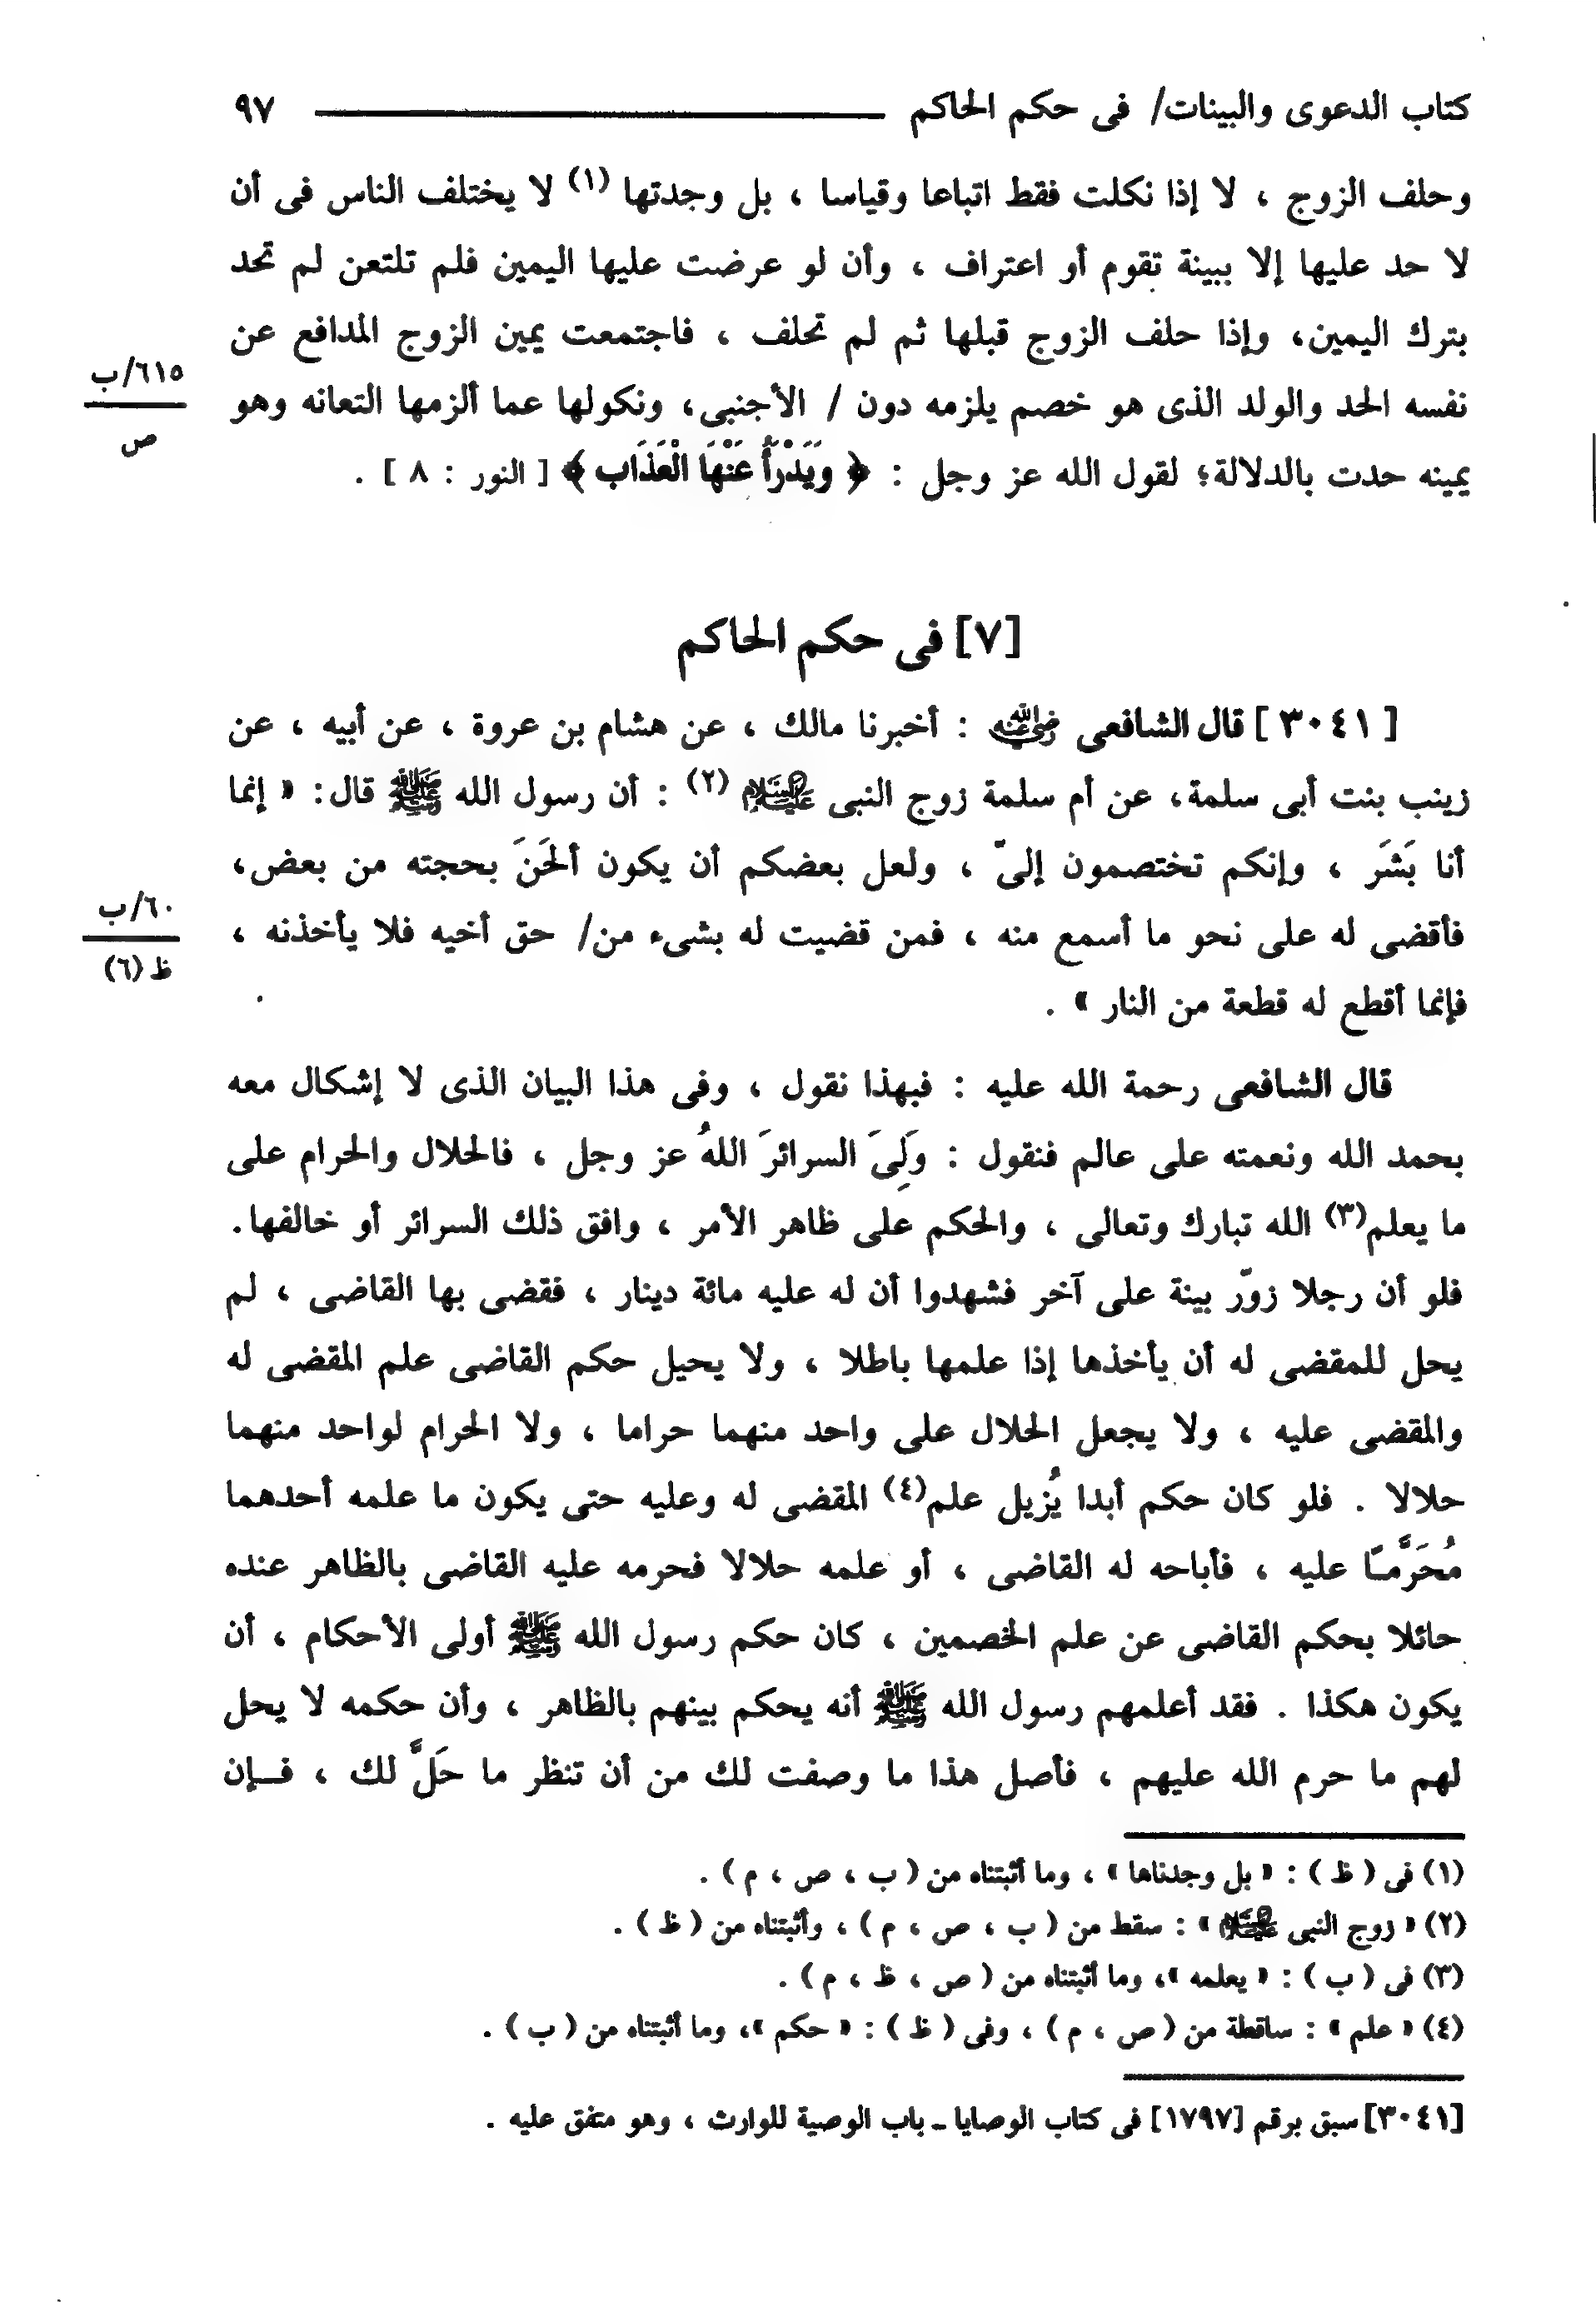 كتاب الدعوى والبينات/ فى حكم الحاكم ٩٧
وحلف الزوج ، لا إذا نكلت فقط اتباعا وقياسا ، بل وجدتها (١) لا يختلف الناس فى أن
لا حد عليها إلا ببينة تقوم أو اعتراف ، وأن لو عرضت عليها اليمين فلم تلتعن لم تحد
بترك اليمين، وإذا حلف الزوج قبلها ثم لم تحلف ، فاجتمعت يمين الزوج المدافع عن
نفسه الحد والولد الذى هو خصم يلزمه دون / الأجنبى، ونكولها عما ألزمها التعانه وهو
٦١٥/ب
ص
يمينه حدت بالدلالة؛ لقول الله عز وجل : ﴿ وَيَدْرَأُ عَنْهَا الْعَذَابَ ﴾ [ النور : ٨ ] .
[٧] فى حكم الحاكم
[ ٣٠٤١ ] قال الشافعى رضي الله عنه : أخبرنا مالك ، عن هشام بن عروة ، عن أبيه ، عن
زينب بنت أبى سلمة، عن أم سلمة زوج النبى عليه السلام (٢) : أن رسول الله ﷺ قال: « إنما
أنا بَشَر ، وإنكم تختصمون إلىّ ، ولعل بعضكم أن يكون ألحَنَ بحجته من بعض،
فأقضى له على نحو ما أسمع منه ، فمن قضيت له بشىء من/ حق أخيه فلا يأخذنه ،
٦٠/ب
ظ (٦)
فإنما أقطع له قطعة من النار » .
قال الشافعى رحمة الله عليه : فبهذا نقول ، وفى هذا البيان الذى لا إشكال معه
بحمد الله ونعمته على عالم فنقول : وَلِىَ السرائرَ اللهُ عز وجل ، فالحلال والحرام على
ما يعلم(٣) الله تبارك وتعالى ، والحكم على ظاهر الأمر ، وافق ذلك السرائر أو خالفها.
فلو أن رجلا زوّر بينة على آخر فشهدوا أن له عليه مائة دينار ، فقضى بها القاضى ، لم
يحل للمقضى له أن يأخذها إذا علمها باطلا ، ولا يحيل حكم القاضى علم المقضى له
والمقضى عليه ، ولا يجعل الحلال على واحد منهما حراما ، ولا الحرام لواحد منهما
حلالا . فلو كان حكم أبدا يُزيل علم(٤) المقضى له وعليه حتى يكون ما علمه أحدهما
مُحَرَّمًا عليه ، فأباحه له القاضى ، أو علمه حلالا فحرمه عليه القاضى بالظاهر عنده
حائلا بحكم القاضى عن علم الخصمين ، كان حكم رسول الله ﷺ أولى الأحكام ، أن
يكون هكذا . فقد أعلمهم رسول الله ﷺ أنه يحكم بينهم بالظاهر ، وأن حكمه لا يحل
لهم ما حرم الله عليهم ، فأصل هذا ما وصفت لك من أن تنظر ما حَلَّ لك ، فـإن
(١) فى ( ظ ) : « بل وجدناها » ، وما أثبتناه من ( ب ، ص ، م ) .
(٢) « زوج النبى عليه السلام » : سقط من ( ب ، ص ، م ) ، وأثبتناه من ( ظ ) .
(٣) فى ( ب ) : « يعلمه »، وما أثبتناه من ( ص ، ظ ، م ) .
(٤) « علم » : ساقطة من ( ص ، م ) ، وفى ( ظ ) : « حكم »، وما أثبتناه من ( ب ) .
[٣٠٤١] سبق برقم [١٧٩٧] فى كتاب الوصايا ـ باب الوصية للوارث ، وهو متفق عليه .